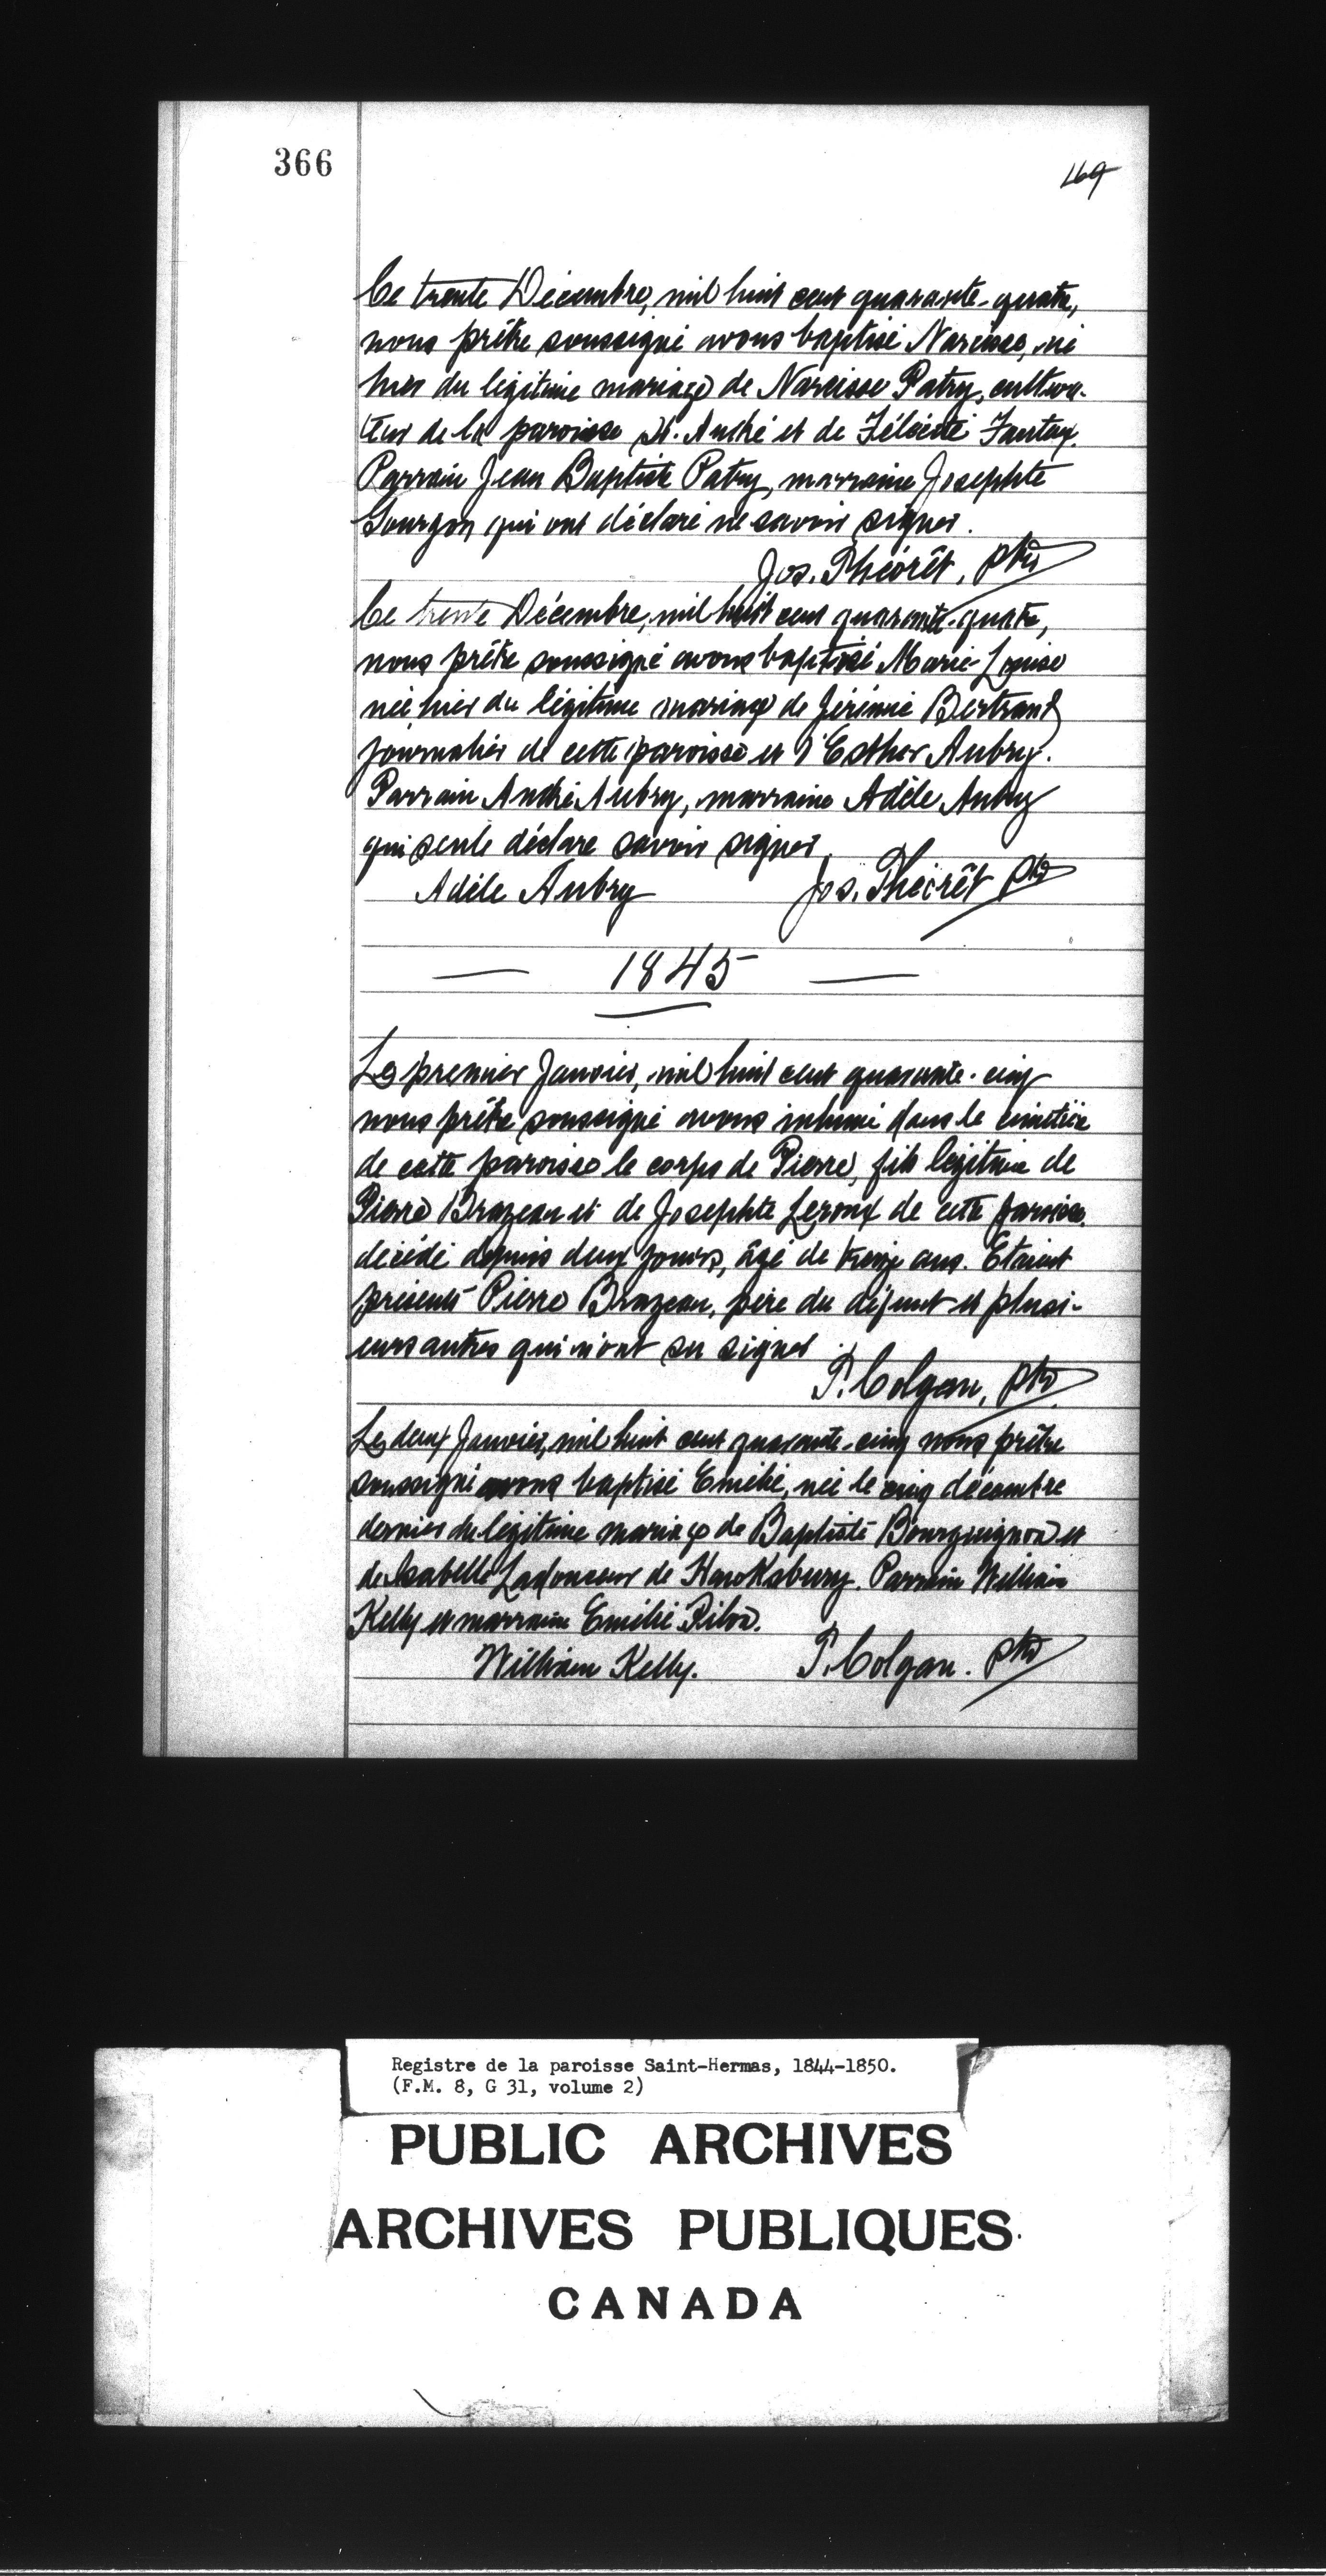 366
169
Ce trente Décembre, mil huit cent quarante-quatre,
nous prêtre soussigné avons baptisé Narcisse, né
hier du légitime mariage de Narcisse Patry, cultiva-
teur de la paroisse St. André et de Félicité Fauteux.
Parrain Jean Baptiste Patry, marraine Josephte
Gourgon qui ont déclaré ne savoir signer.
Jos. Théorêt, ptre
Ce trente Décembre, mil huit cent quarante-quatre,
nous prêtre soussigné avons baptisé Marie-Louise
née hier du légitime mariage de Jérémie Bertrand
journalier de cette paroisse et d'Esther Aubry.
Parrain André Aubry, marraine Adèle Aubry
qui seule déclare savoir signer.
Adèle Aubry Jos. Théorêt ptre
— 1845 —
Le premier Janvier, mil huit cent quarante-cinq
nous prêtre soussigné avons inhumé dans le cimetière
de cette paroisse le corps de Pierre, fils légitime de
Pierre Brazeau et de Josephte Leroux de cette paroisse,
décédé depuis deux jours, âgé de treize ans. Etaient
présents Pierre Brazeau, père du défunt et plusi-
eurs autres qui n'ont su signer.
P. Colgan, ptre.
Le deux Janvier, mil huit cent quarante-cinq nous prêtre
soussigné avons baptisé Emélie, née le cinq décembre
dernier du légitime mariage de Baptiste Bourguignon et
de Isabelle Ladouceur de Hawksbury. Parrain William
Kelly et marraine Emélie Pilon.
William Kelly. P. Colgan. ptre
Registre de la paroisse Saint-Hermas, 1844-1850.
(F.M. 8, G 31, volume 2)
PUBLIC ARCHIVES
ARCHIVES PUBLIQUES
CANADA